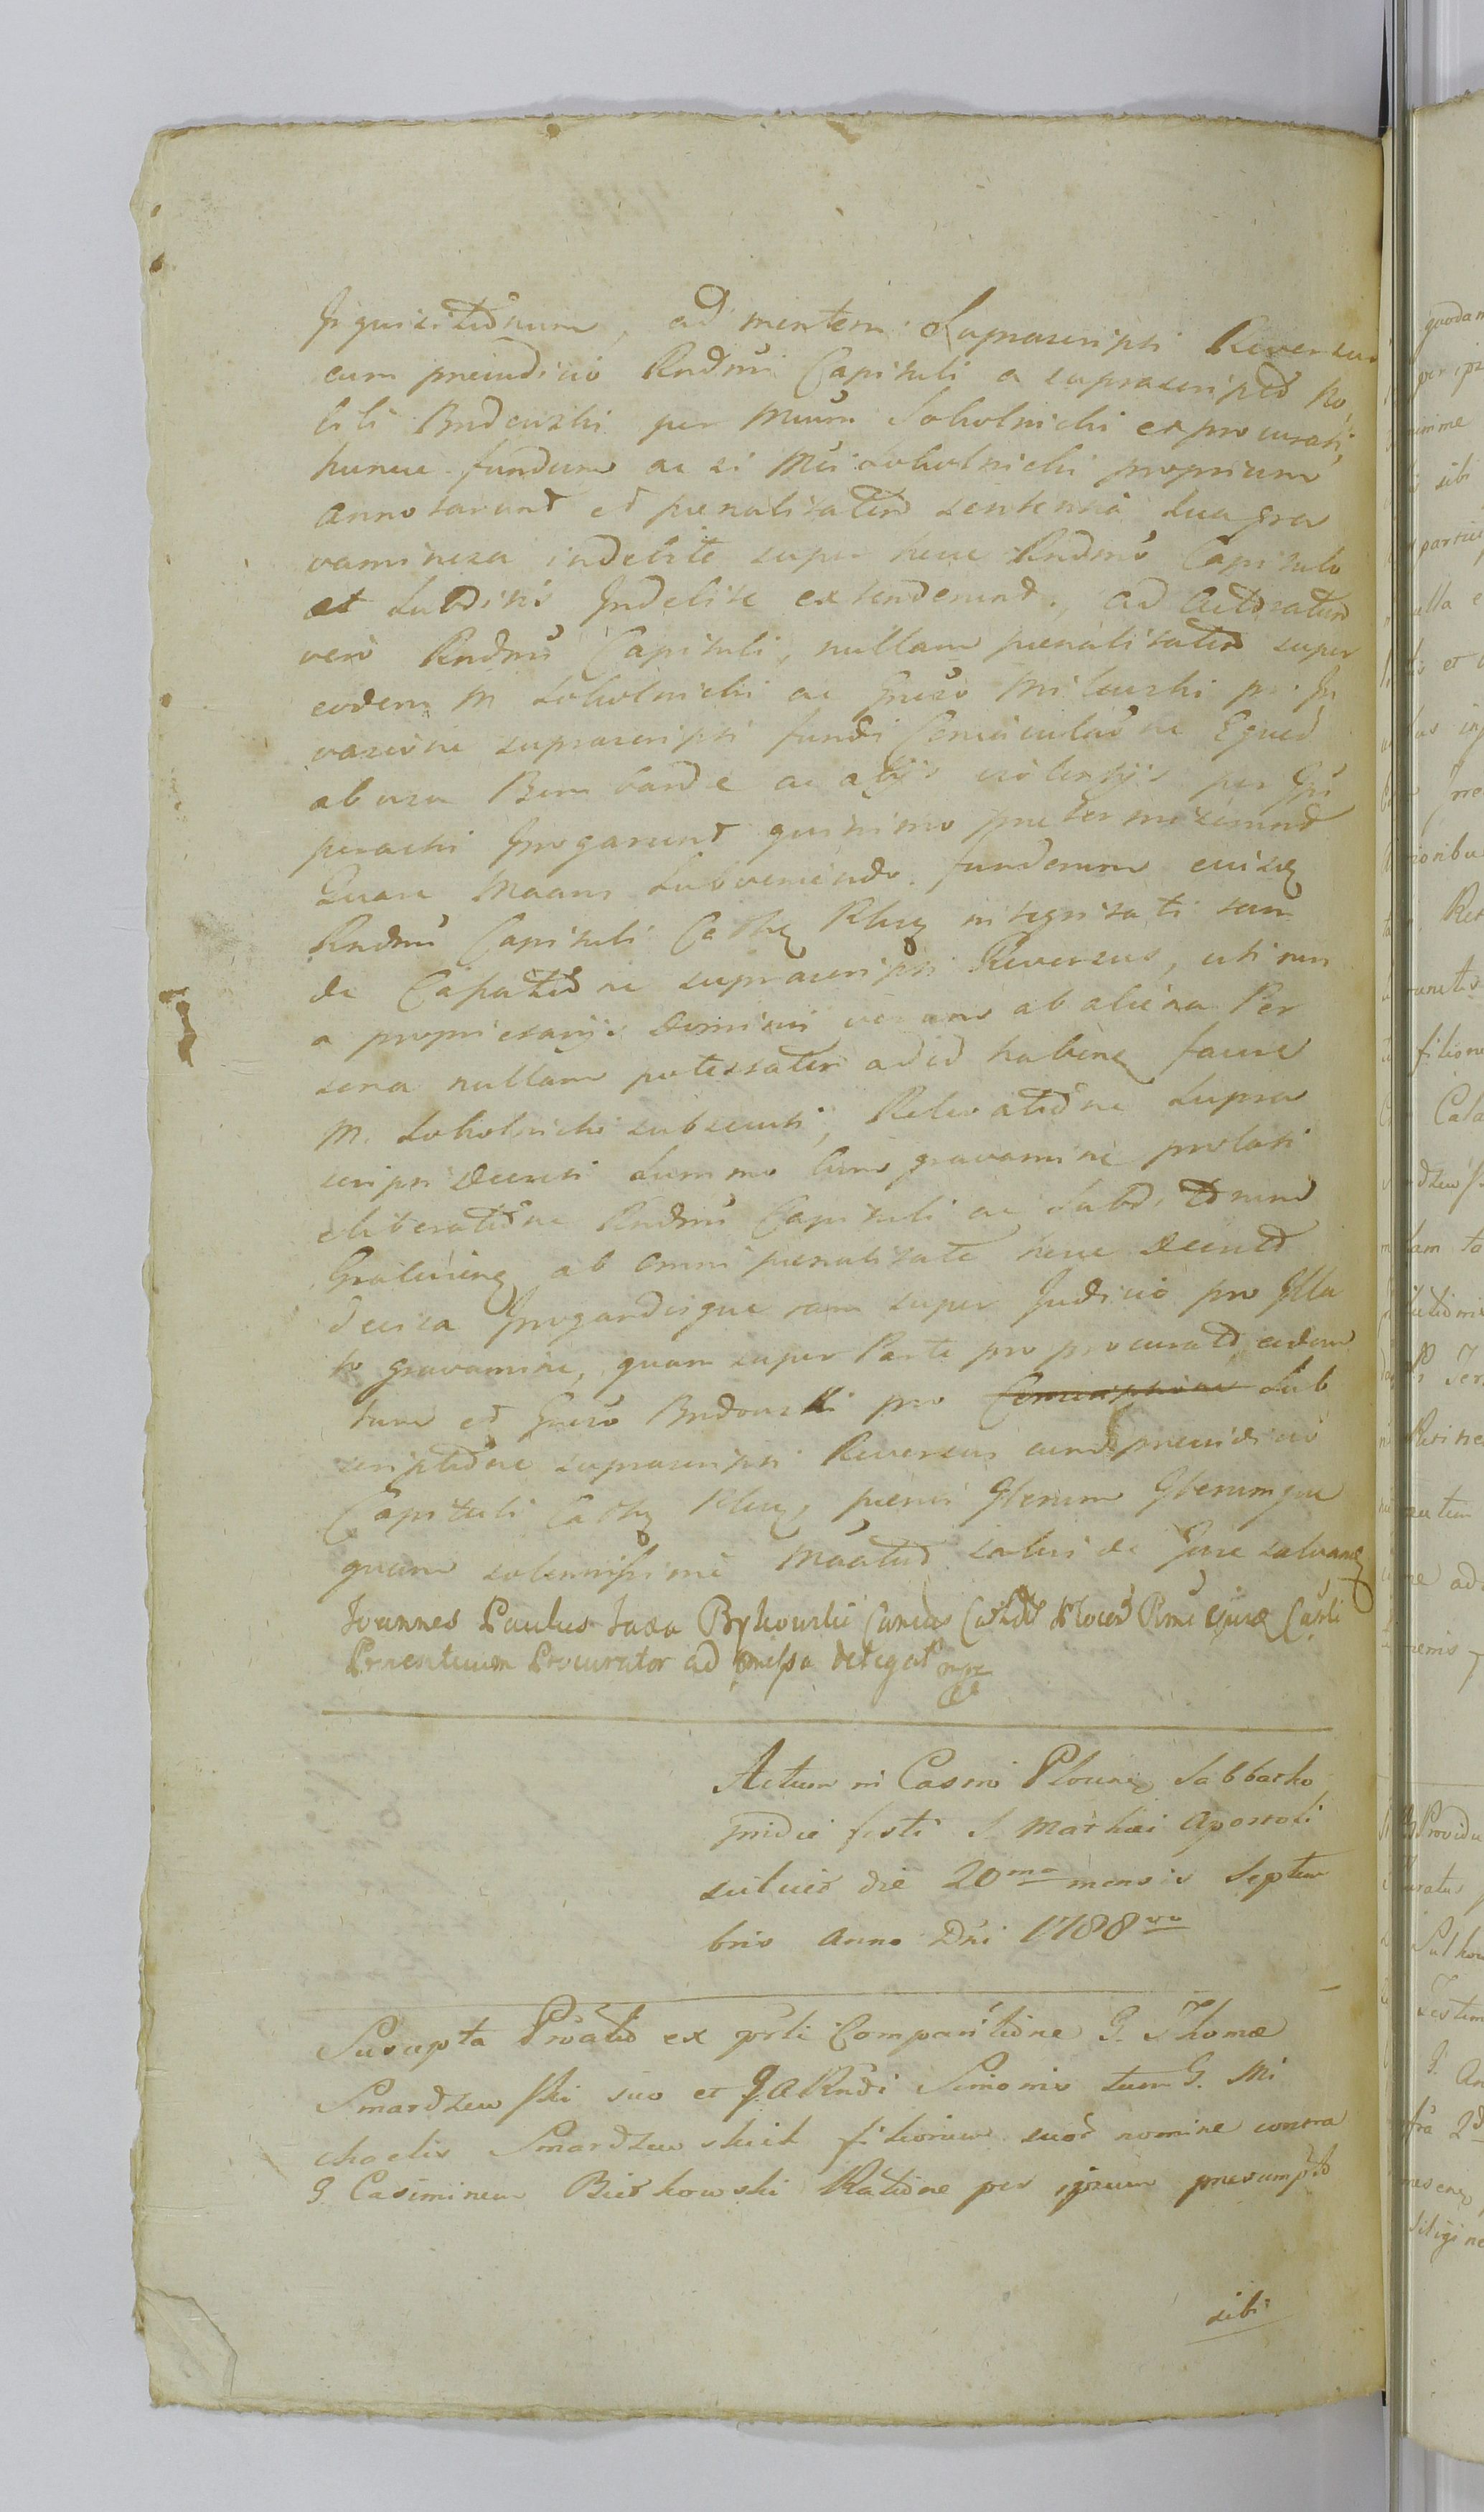 Inquisitionum, ad mentem Suprascripti Reversus
cum preiudicio Rndmi Capituli a suprascripto No
bili Budowski per Mcum Sokolnicki exprocurati,
hunce fundum ac si Mci Sokolnicki proprium
annotarunt et penalitatem sententia sua gra
vaminosa indebite super hece Rndmo Capitulo
et Subditis Indebite extenderunt, ad Actoratum
vero Rndmi Capituli, nullam penalitatem super
eodem M Sokolnicki ac Gnoso Milewski pro In
vasione suprascripti fundi
abusu ac alijs violentijs per Ipsos
peracti Irrogarunt quinimo pretermiserunt
Quare Maans Subveniendo fundorum eiusdq
Rndmi Capituli Cathq Plocq integritati tum
de Cassatione suprascripti Reversus, uti non
a proprietarijs Domini verum ab aliena Per
sona nullam potestatem ad id habenq favore
M. Sokolnicki subsecuti, Relevatione Supra
scripti Decreti Summo cum gravamine prolati
eliberatione Rndmi Capituli ac Subditorum
ab omni penalitate hece Decreto
decisa Irrogandisque tam super Judicio pro Illa
to gravamine, quam super Parte pro procurato eodem
tum et Gnoso Budowski pro Conscriptione Sub
scriptione suprascripti Reversus cum preiudicio
Capituli Cathq Plocq, penis Iterum Iterumque
quam solennissime Maatus salvis de Jure salvanq
Joannes Paulus Jaxa Bykowski Cancus Cathdis Plocen Rmi ejusdo Capli
Prnentium Procurator ad pmissa delegat mpr

Actum in Castro Plocenq Sabbatho
pridie festi S. Mathei Apostoli
scilicet die 20ma mensis Septem
bris Anno Dni 1788vo

Suscepta Proatio ex prsli Comparitione G. Thomæ
Smardzewsski suo et G. A Rndi Simonis tum G. Mi
chaelis Smardzewskich filiorum suor nomine contra
G. Casimirum Bierkowski Ratione per ipsum presumpto
sibi